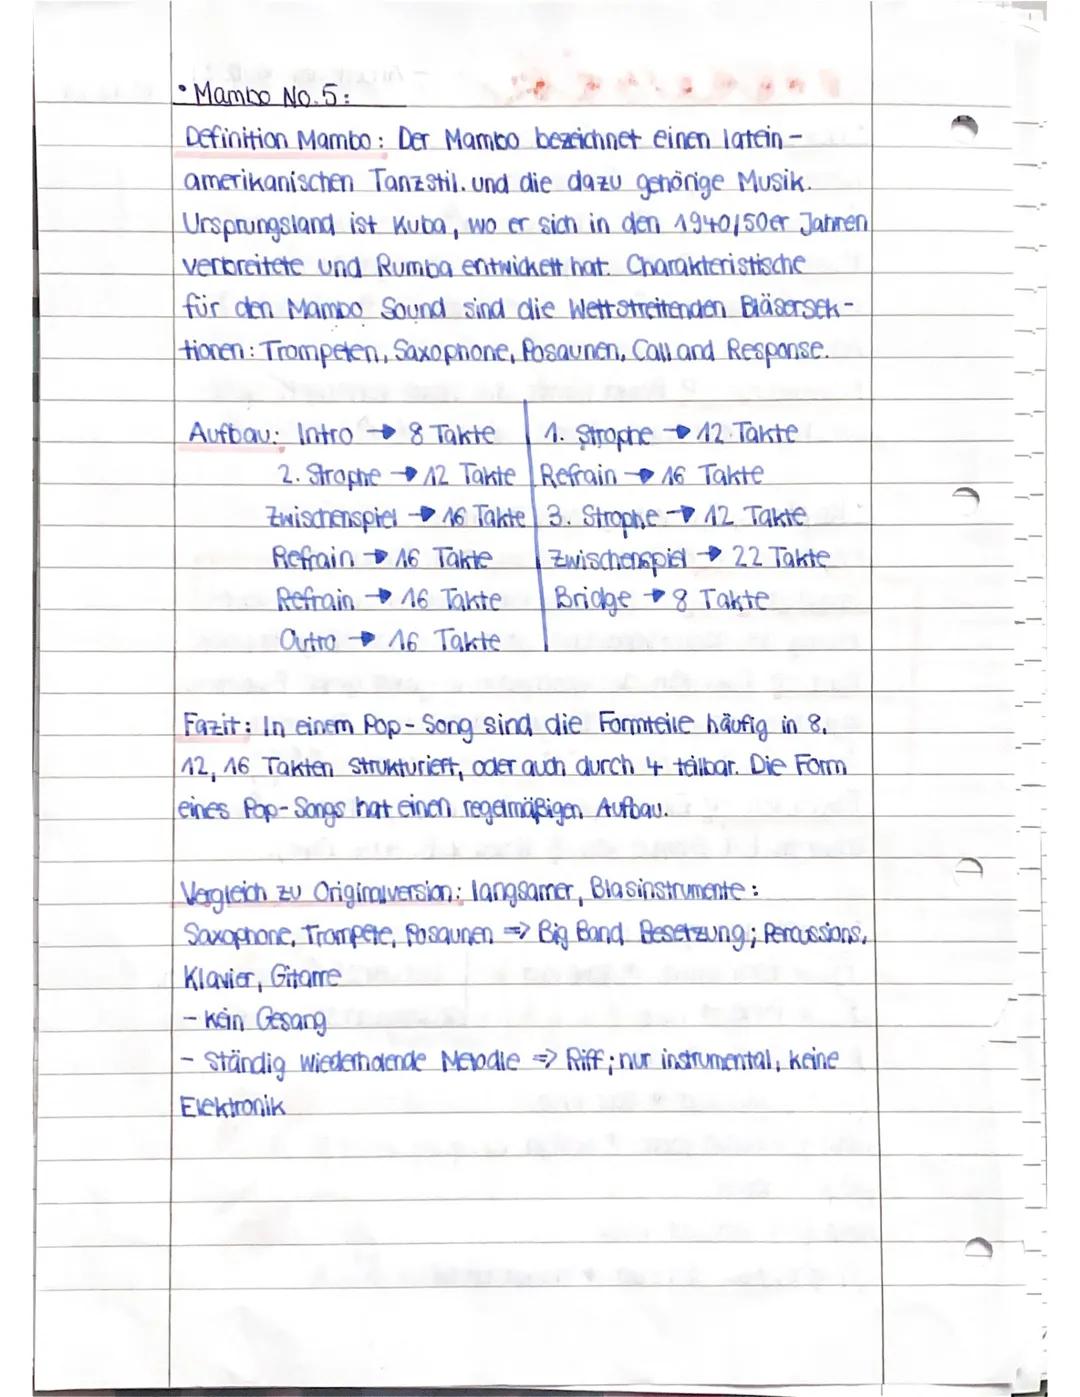 • Mambo No.5:
Definition Mambo: Der Mambo bezeichnet einen latein-
amerikanischen Tanzstil. und die dazu gehörige Musik.
Ursprungsland ist Kuba, wo er sich in den 1940/50er Jahren
verbreitete und Rumba entwickelt hat. Charakteristische
für den Mambo Sound sind die Wettstreitenden Bläsersek-
tionen: Trompeten, Saxophone, Posaunen, Call and Response.
Aufbau: Intro → 8 Takte | 1. Strophe → 12 Takte
2. Strophe → 12 Takte | Refrain → 16 Takte
Zwischenspiel → 16 Takte | 3. Strophe → 12 Takte
Refrain → 16 Takte | Zwischenspiel → 22 Takte
Refrain → 16 Takte | Bridge → 8 Takte
Outro → 16 Takte
Fazit: In einem Pop-Song sind die Formteile häufig in 8,
12, 16 Takten strukturiert, oder auch durch 4 teilbar. Die Form
eines Pop-Songs hat einen regelmäßigen Aufbau.
Vergleich zu Originalversion: langsamer, Blasinstrumente:
Saxophone, Trompete, Posaunen => Big Band Besetzung; Percussions,
Klavier, Gitarre
- kein Gesang
- Ständig wiederholende Melodie => Riff; nur instrumental, keine
Elektronik